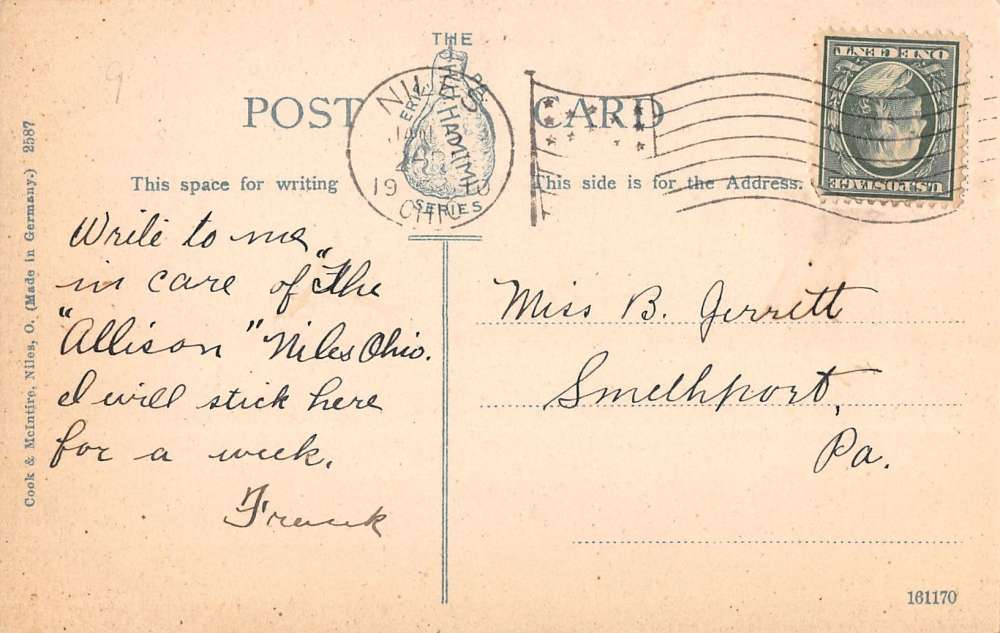 THE
POST CARD
SERIES
NILES
JAN
19 10
OHIO
ONE CENT
U.S. POSTAGE
This space for writing
This side is for the Address.
Write to me
in care of "The
"Allison" Niles Ohio.
I will stick here
for a week.
Frank
Miss B. Jerrett
Smethport,
Pa.
Cook & McIntire, Niles, O. (Made in Germany.) 2587
161170